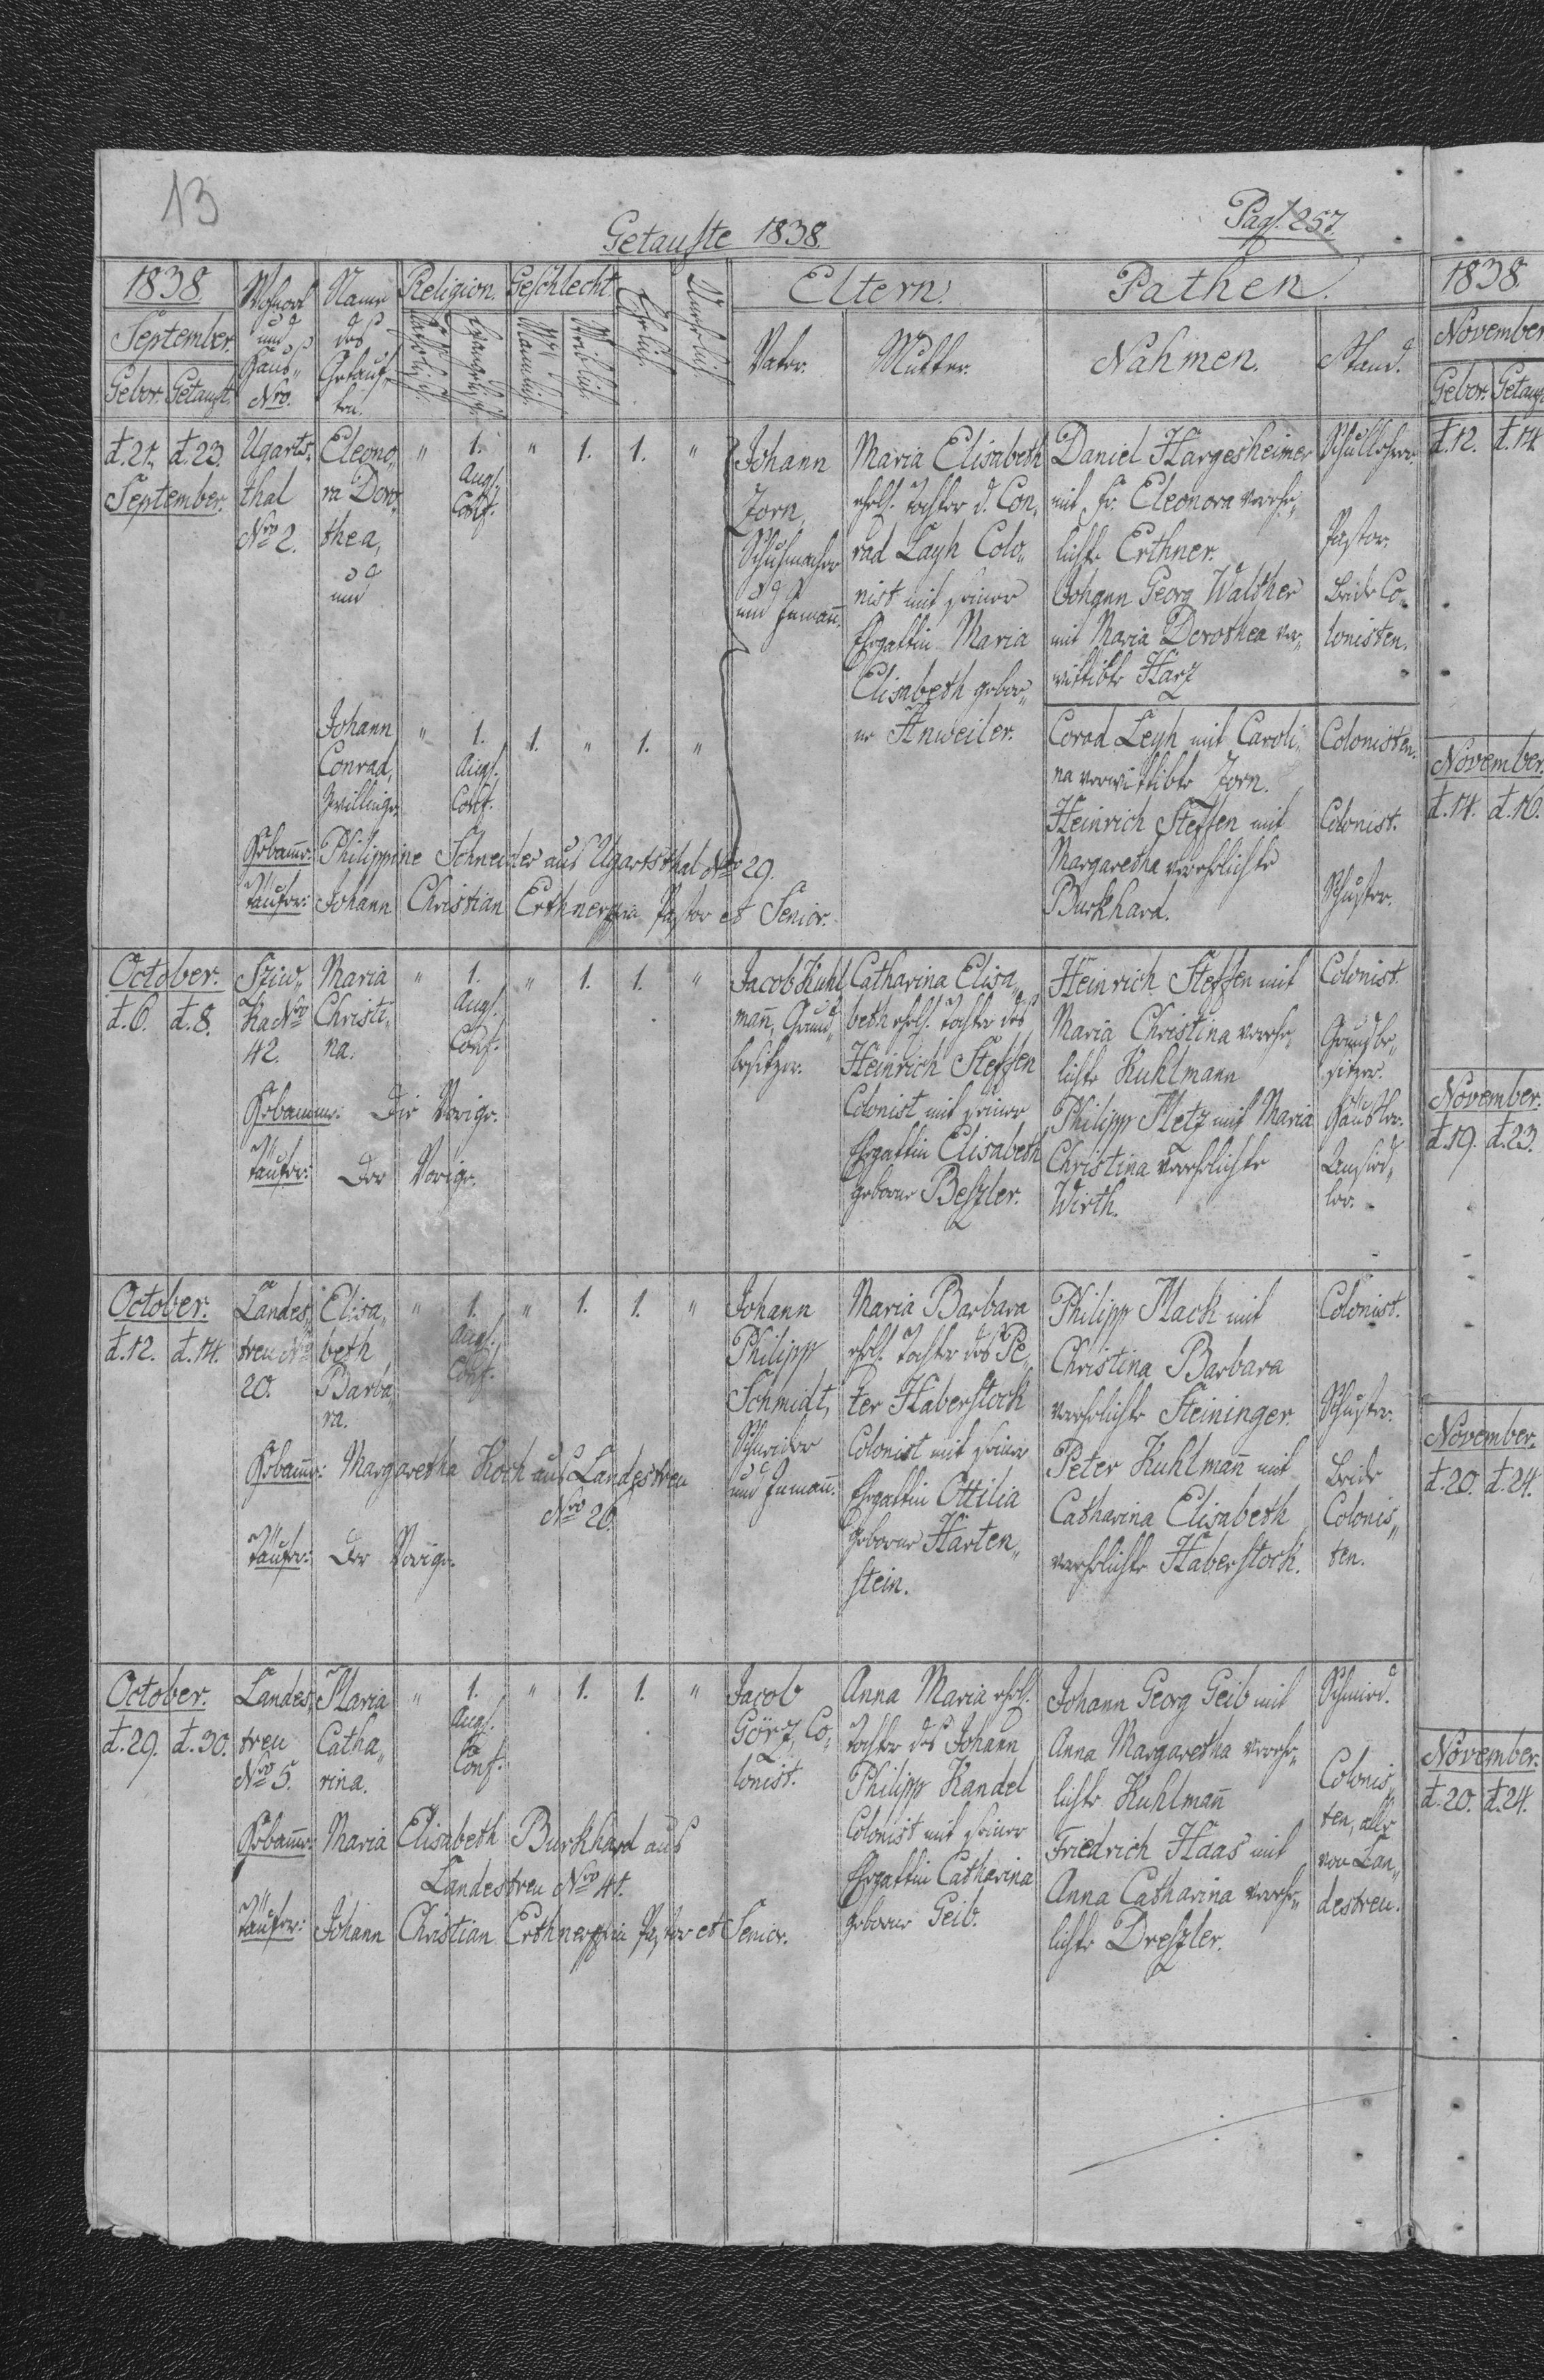 13
Getaufte 1838.
Pag. 257.
1838.
September.
Gebor. Getauft.
Wohnort
und
Haus„
Nro.
Name
des
Getauf„
ten.
Religion.
Katholisch.
Evangelisch.
Geschlecht.
Mänlich.
Weiblich.
Ehelich.
Unehelich.
Eltern.
Vater.
Mutter.
Pathen.
Nahmen.
Stand.
d. 21. d. 23.
September.
Ugarts„
thal
Nro 2.
Eleono„
ra Doro„
thea,
und
" 1. " 1. 1. "
Augs.
Conf.
Johann
Zorn,
Schuhmacher
und Inmañ.
Maria Elisabeth
ehel. Tochter d. Con„
rad Layh Colo„
nist mit seiner
Ehgattin Maria
Elisabeth gebor„
ne Anweiler.
Daniel Hargesheimer
mit Fr. Eleonora vereh„
lichte Erthner.
Johann Georg Walther
mit Maria Dorothea ver„
wittibte Harz
Schullehrer.
Pastor.
Beide Co„
lonisten.
Johann
Conrad,
Zwillinge.
" 1. 1. " 1. "
Augs.
Conf.
Corad Leyh mit Caroli„
na verwittibte Zorn.
Heinrich Steffen mit
Margaretha verehlichte
Burkhard.
Colonisten.
Colonist.
Schuster.
Hebam̃e: Philippine Schneider aus Ugartsthal Nro 29.
Täufer: Johann Christian Erthner Pastor et Senior.
October.
d. 6. d. 8.
Sziw„
ka Nro
42.
Maria
Christi„
na.
" 1. " 1. 1. "
Augs.
Conf.
Jacob Kuhl
mañ, Grund„
besitzer.
Catharina Elisa„
beth ehel. Tochter des
Heinrich Steffen
Colonist mit seiner
Ehgattin Elisabeth
geborne Beszler.
Heinrich Steffen mit
Maria Christina vereh„
lichte Kuhlmann
Philipp Metz mit Maria
Christina verehlichte
Wirth.
Colonist.
Grundbe„
sitzer.
Häusler.
Ansied„
ler.
Hebamme: Die Vorige.
Täufer: Der Vorige.
October.
d. 12. d. 14.
Landes„
treu Nro
20.
Elisa„
beth
Barba„
ra.
" 1. " 1. 1. "
Augs.
Conf.
Johann
Philipp
Schmidt,
Schneider
und Inmañ.
Maria Barbara
ehel. Tochter des Pe„
ter Haberstock
Colonist mit seiner
Ehgattin Ottilia
geborne Harten„
stein.
Philipp Mack mit
Christina Barbara
verehlichte Steininger.
Peter Kuhlmañ mit
Catharina Elisabeth
verehlichte Haberstock.
Colonist.
Schuster.
Beide
Colonis„
ten.
Hebam̃e: Margaretha Koch aus Landestreu
Nro 26.
Täufer: Der Vorige.
October.
d. 29. d. 30.
Landes„
treu
Nro 5.
Maria
Catha„
rina.
" 1. " 1. 1. "
Augs.
Conf.
Jacob
Görz, Co„
lonist.
Anna Maria ehel.
Tochter des Johann
Philipp Kandel
Colonist mit seiner
Ehgattin Catharina
geborne Geib.
Johann Georg Geib mit
Anna Margaretha vereh„
lichte Kuhlmañ
Friedrich Haas mit
Anna Catharina vereh„
lichte Dreszler.
Schmied.
Colonis„
ten, alle
von Lan„
destreu.
Hebam̃e: Maria Elisabeth Burkhard aus
Landestreu Nro 41.
Täufer: Johann Christian Erthner Pastor et Senior.
1838.
November
Gebor. Getauf
d. 12. d. 14
November.
d. 14. d. 16.
November.
d. 19. d. 23.
November.
d. 20. d. 24.
November.
d. 20. d. 24.